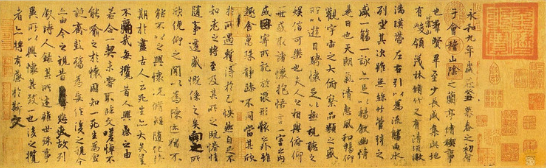 永和九年歲在癸丑暮春之初會
于會稽山陰之蘭亭脩稧事
也羣賢畢至少長咸集此地
有崇山峻領茂林脩竹又有清流激
湍暎帶左右引以為流觴曲水
列坐其次雖無絲竹管弦之
盛一觴一詠亦足以暢敘幽情
是日也天朗氣清惠風和暢仰
觀宇宙之大俯察品類之盛
所以遊目騁懷足以極視聽之
娛信可樂也夫人之相與俯仰
一世或取諸懷抱悟言一室之內
或因寄所託放浪形骸之外雖
趣舍萬殊靜躁不同當其欣
於所遇蹔得於己快然自足不
知老之將至及其所之既惓情
隨事遷感慨係之矣向之所
欣俛仰之閒以為陳跡猶不
能不以之興懷況脩短隨化終
期於盡古人云死生亦大矣豈
不痛哉每攬昔人興感之由
若合一契未嘗不臨文嗟悼不
能喻之於懷固知一死生為虛
誕齊彭殤為妄作後之視今
亦由今之視昔悲夫故列
敘時人錄其所述雖世殊事
異所以興懷其致一也後之攬
者亦將有感於斯文